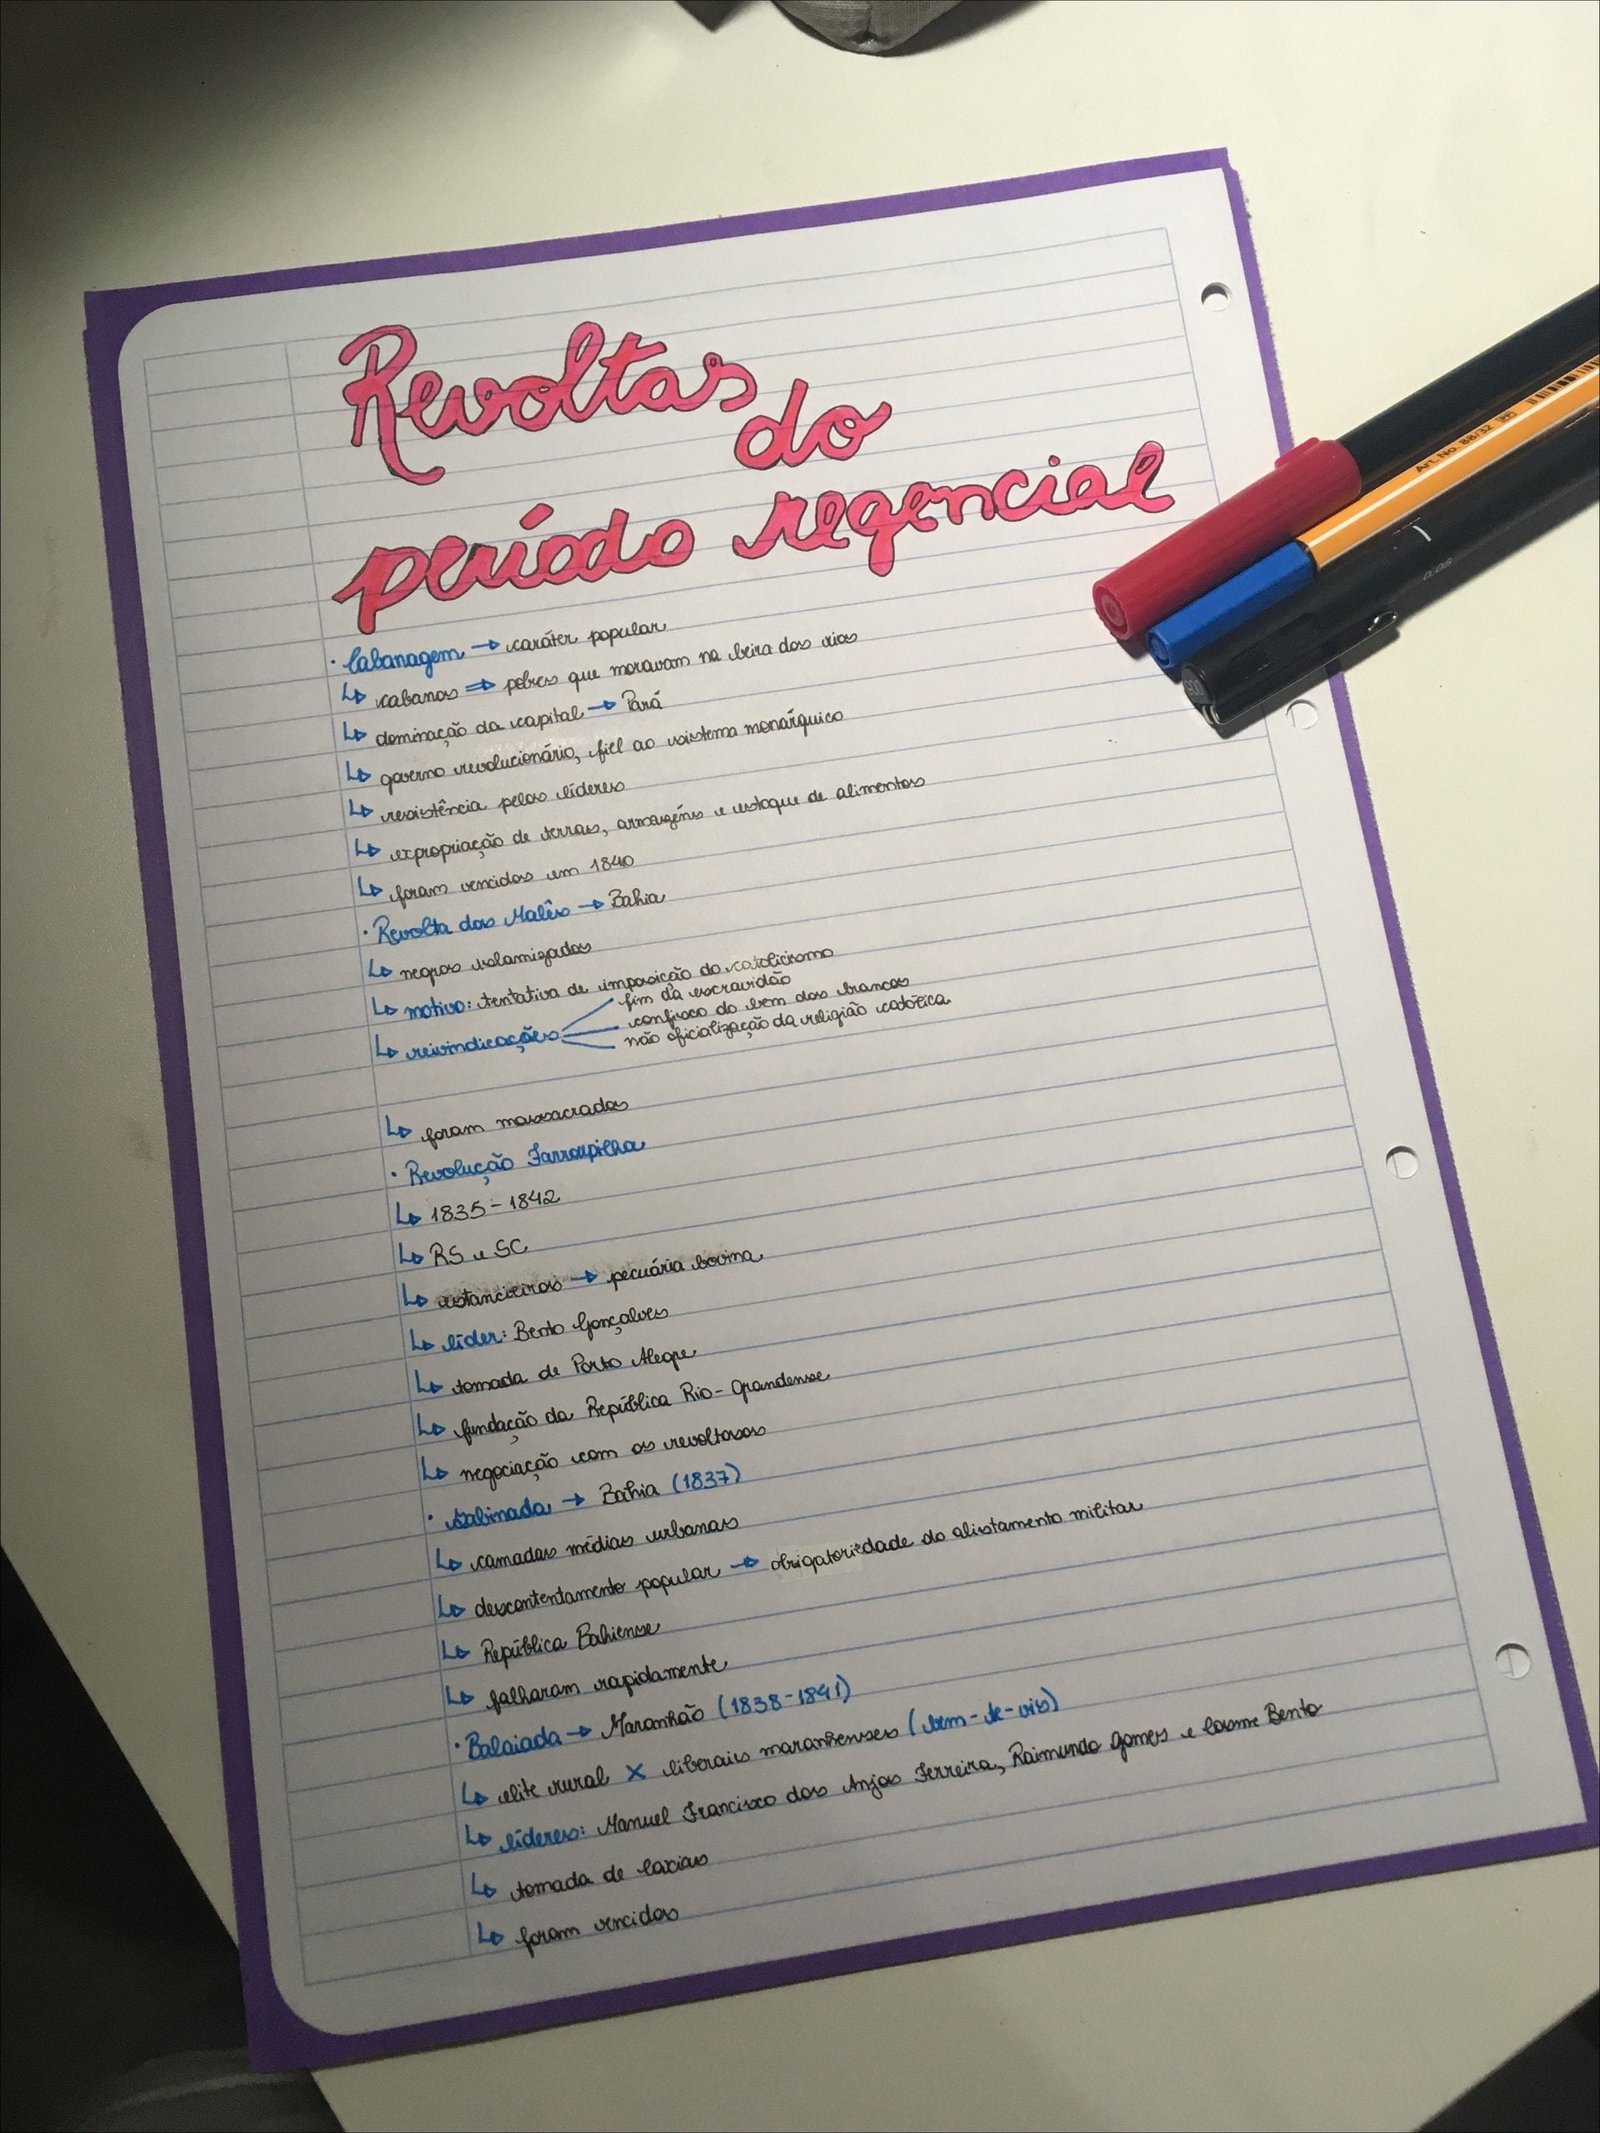 Revoltas
do
período regencial
· Cabanagem → caráter popular
↳ cabanos ⇒ pobres que moravam na beira dos rios
↳ dominação da capital → Pará
↳ governo revolucionário, fiel ao sistema monárquico
↳ resistência pelos líderes
↳ expropriação de terras, armazéns e estoque de alimentos
↳ foram vencidos em 1840
· Revolta dos Malês → Bahia
↳ negros islamizados
↳ motivo: tentativa de imposição do catolicismo
↳ reivindicações
fim da escravidão
confisco do bem dos brancos
não oficialização da religião católica
↳ foram massacrados
· Revolução Farroupilha
↳ 1835 - 1842
↳ RS e SC
↳ estancieiros → pecuária bovina
↳ líder: Bento Gonçalves
↳ tomada de Porto Alegre
↳ fundação da República Rio-Grandense
↳ negociação com os revoltosos
· Sabinada → Bahia (1837)
↳ camadas médias urbanas
↳ descontentamento popular → obrigatoriedade do alistamento militar
↳ República Bahiense
↳ falharam rapidamente
· Balaiada → Maranhão (1838-1841)
↳ elite rural X liberais maranhenses (bem-te-vis)
↳ líderes: Manuel Francisco dos Anjos Ferreira, Raimundo Gomes e Cosme Bento
↳ tomada de Caxias
↳ foram vencidos
Art. No. 88/32
0.05